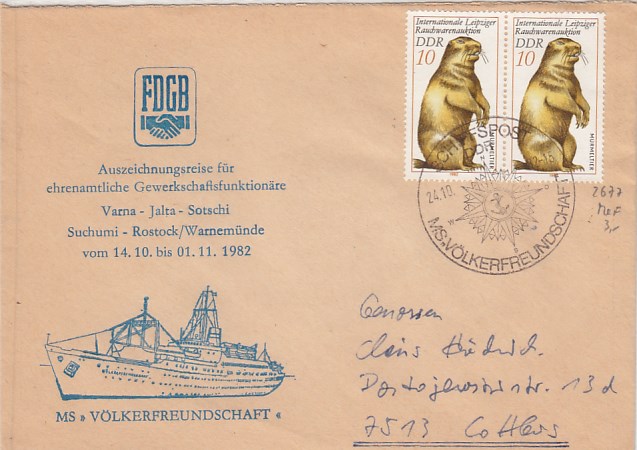 FDGB
Auszeichnungsreise für
ehrenamtliche Gewerkschaftsfunktionäre
Varna - Jalta - Sotschi
Suchumi - Rostock/Warnemünde
vom 14. 10. bis 01. 11. 1982
MS » VÖLKERFREUNDSCHAFT «
Internationale Leipziger
Rauchwarenauktion
DDR
10
MURMELTIER
1982
Internationale Leipziger
Rauchwarenauktion
DDR
10
MURMELTIER
SCHIFFSPOST
24.10.
MS»VÖLKERFREUNDSCHAFT
2677
MeF
3,-
Genossen
13d
7513 Cottbus